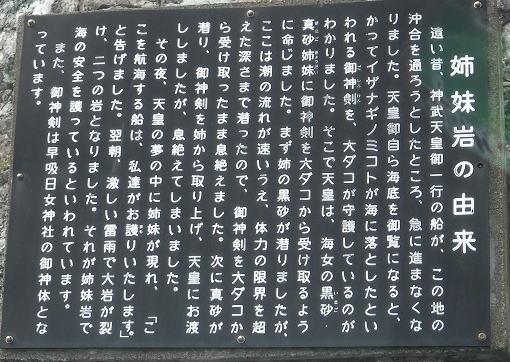 姉妹岩の由来
遠い昔、神武天皇御一行の船が、この地の
沖合を通ろうとしたところ、急に進まなくな
りました。天皇御自ら海底を御覧になると、
かつてイザナギノミコトが海に落としたとい
われる御神剣を、大ダコが守護しているのが
わかりました。そこで天皇は、海女の黒砂・
真砂姉妹に御神剣を大ダコから受け取るよう
に命じました。まず姉の黒砂が潜りましたが、
ここは潮の流れが速いうえ、体力の限界を超
えた深さまで潜ったので、御神剣を大ダコか
ら受け取ったまま息絶えました。次に真砂が
潜り、御神剣を姉から取り上げ、天皇にお渡
ししましたが、息絶えてしまいました。
その夜、天皇の夢の中に姉妹が現れ、「こ
こを航海する船は、私達がお護りいたします。」
と告げました。翌朝、激しい雷雨で大岩が裂
け、二つの岩となりました。それが姉妹岩で
海の安全を護っているといわれています。
また、御神剣は早吸日女神社の御神体とな
っています。